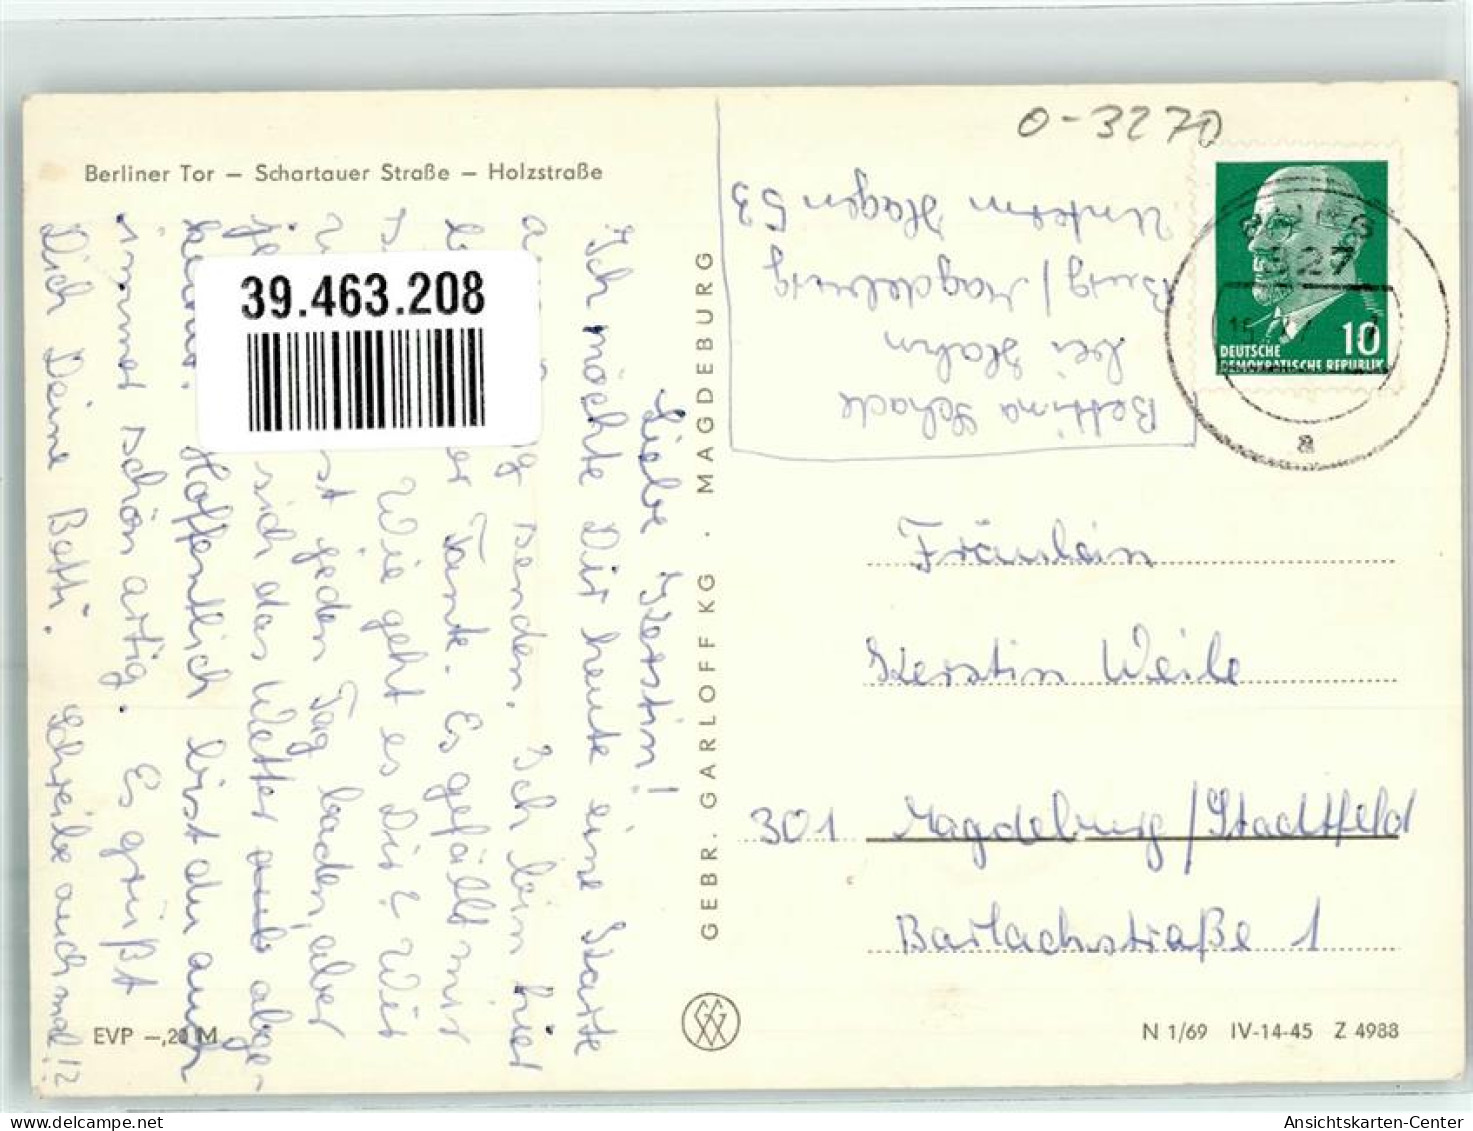 O-3270
Berliner Tor – Schartauer Straße – Holzstraße
39.463.208
Liebe Kerstin!
Ich möchte Dir heute eine Karte
senden. Ich bin hier
Tante. Es gefällt mir
Wie geht es Dir? Wir
jeden Tag baden, aber
sich das Wetter abge-
Hoffentlich bist du auch
immer schön artig. Es grüßt
Dich Deine Betti. Schreibe auch mal!?
EVP –,20 M
GEBR. GARLOFF KG · MAGDEBURG
Bettina Schack
bei Hahn
Burg/Magdeburg
Unterm Hagen 53
BURG
327
a
10
DEUTSCHE
DEMOKRATISCHE REPUBLIK
Fräulein
Kerstin Weile
301 Magdeburg/Stadtfeld
Barlachstraße 1
N 1/69 IV-14-45 Z 4988
Ansichtskarten-Center